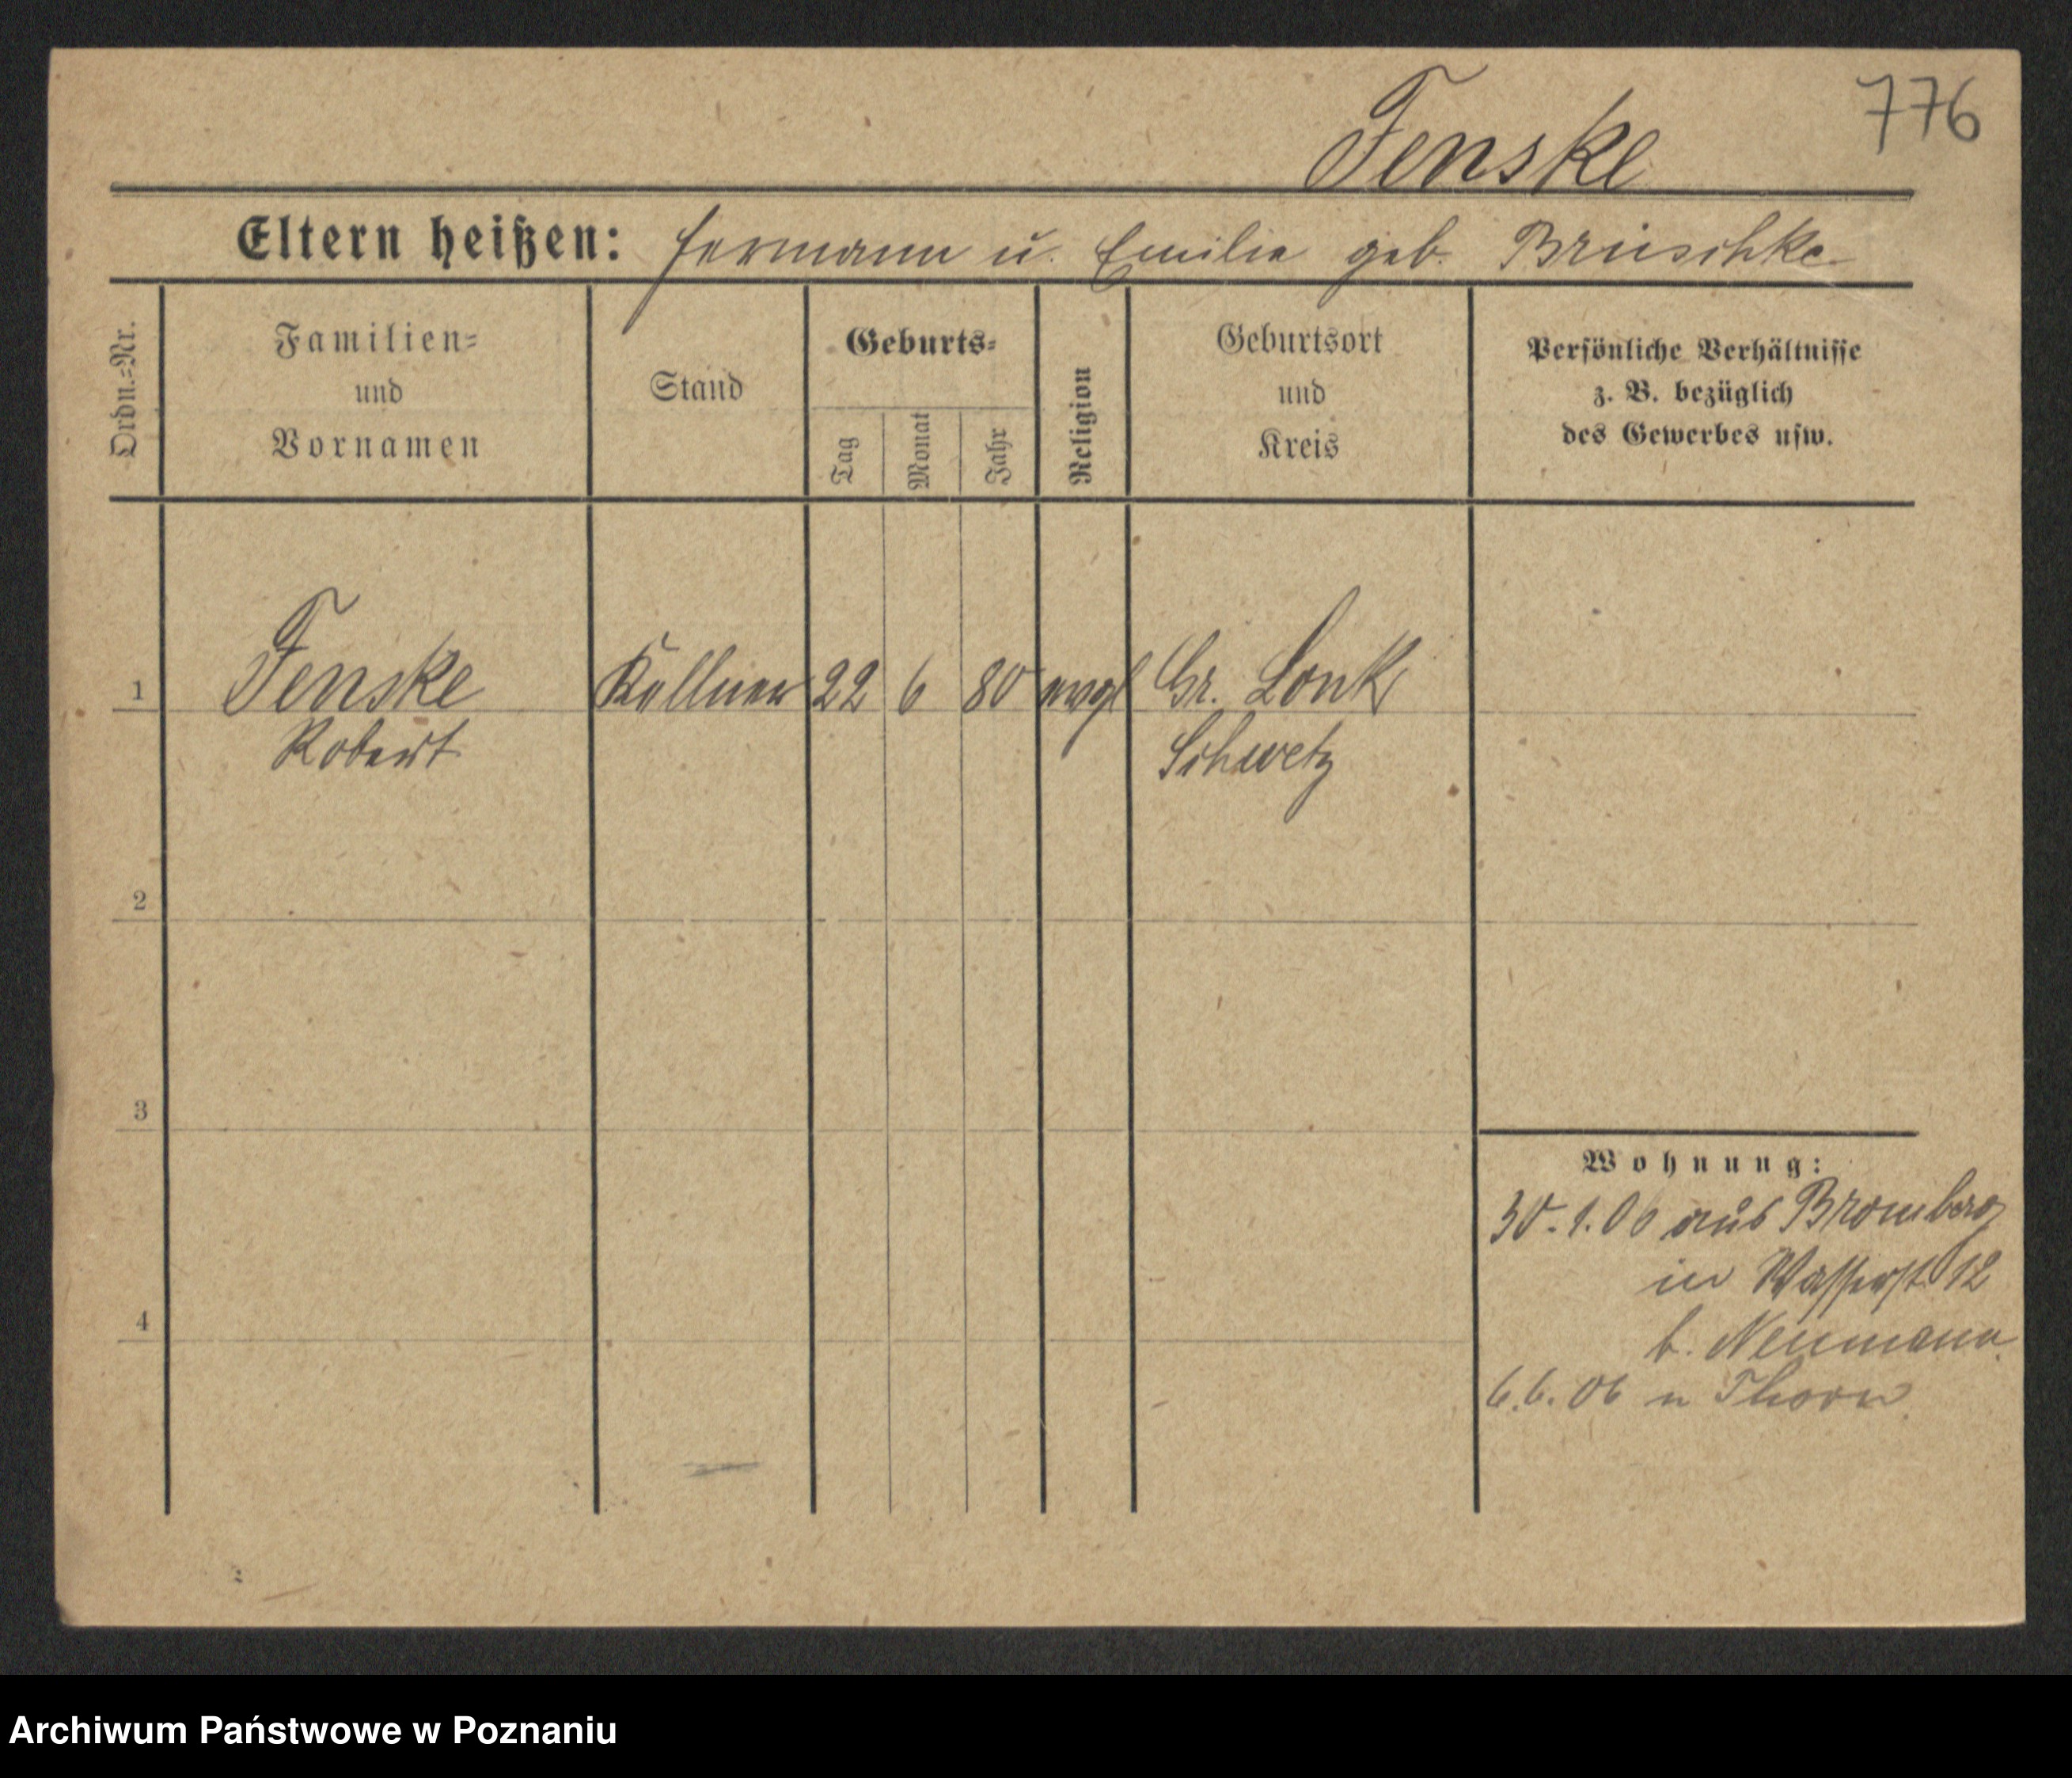 776
Fenske
Eltern heißen: Hermann u. Emilie geb. Brüschke
Ordn.=Nr.
Familien=
und
Vornamen
Stand
Geburts=
Tag
Monat
Jahr
Religion
Geburtsort
und
Kreis
Persönliche Verhältnisse
z. B. bezüglich
des Gewerbes usw.
1 Fenske Kellner 22 6 80 evgl Gr. Lonk
Robert Schwetz
2
3
4
Wohnung:
30.1.06 aus Bromberg
in Wasserst 12
b. Neumann.
6.6.06 n Thorn
Archiwum Państwowe w Poznaniu